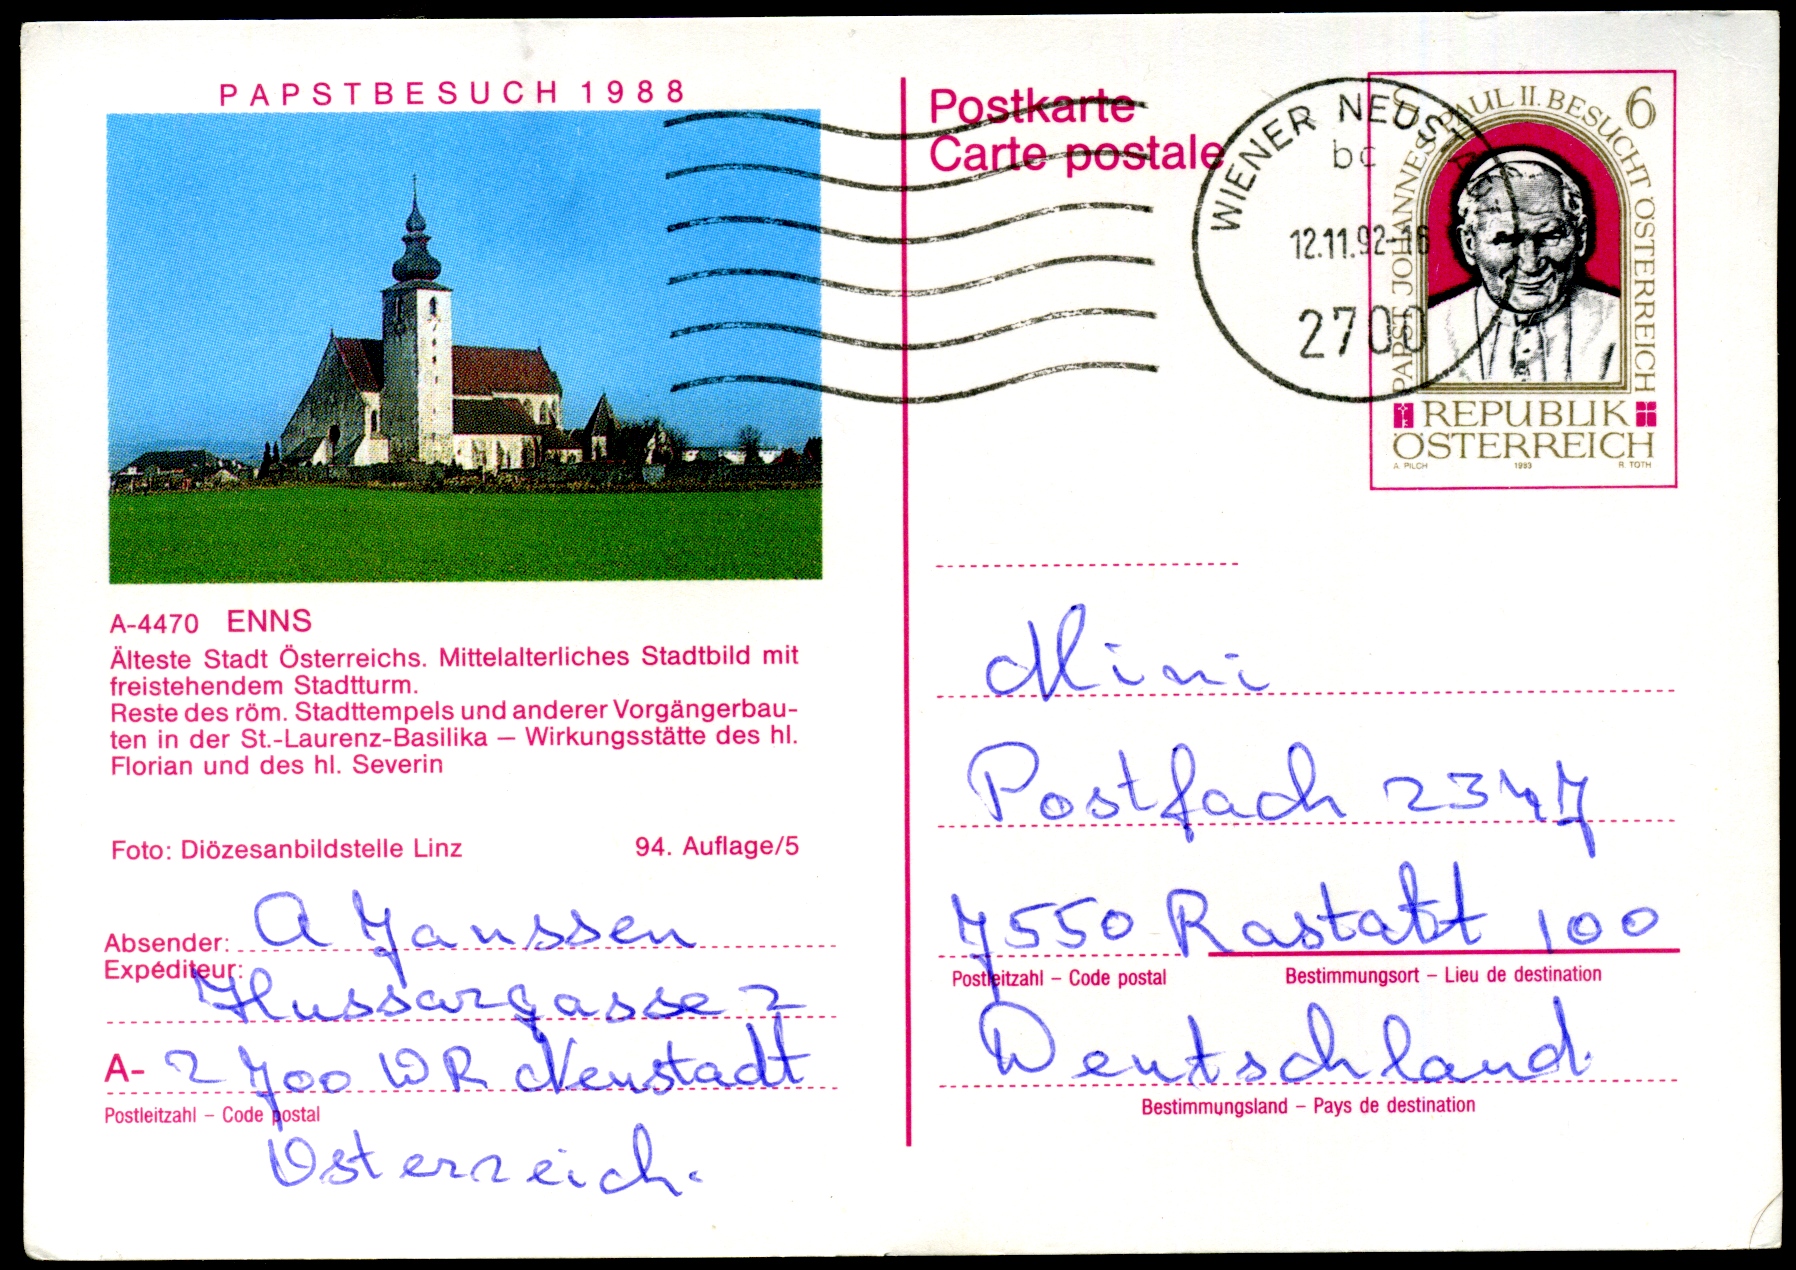 PAPSTBESUCH 1988
A-4470 ENNS
Älteste Stadt Österreichs. Mittelalterliches Stadtbild mit
freistehendem Stadtturm.
Reste des röm. Stadttempels und anderer Vorgängerbau-
ten in der St.-Laurenz-Basilika – Wirkungsstätte des hl.
Florian und des hl. Severin
Foto: Diözesanbildstelle Linz 94. Auflage/5
Absender: A Janssen
Expéditeur:
Hussargasse 2
A- 2700 WR Neustadt
Postleitzahl – Code postal
Österreich.
Postkarte
Carte postale
WIENER NEUSTA
bc
12.11.92-16
2700
PAPST JOHANNES PAUL II. BESUCHT ÖSTERREICH
6
REPUBLIK
ÖSTERREICH
A. PILCH 1983 R. TOTH
Mini
Postfach 2347
7550 Rastatt 100
Postleitzahl – Code postal Bestimmungsort – Lieu de destination
Deutschland
Bestimmungsland – Pays de destination